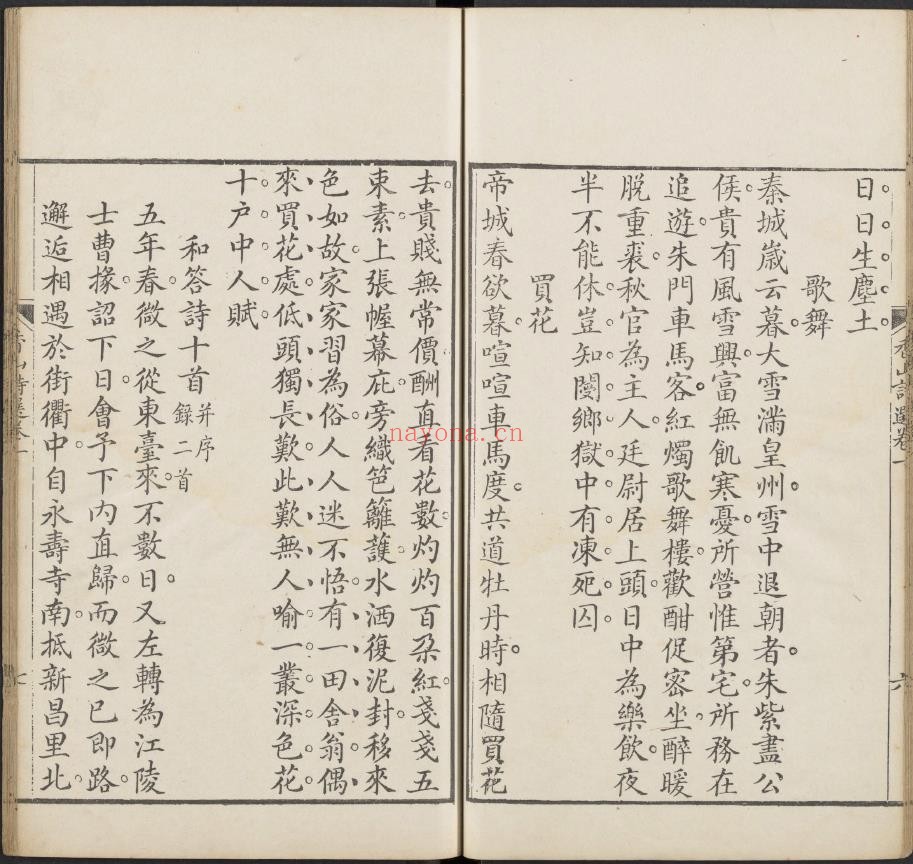 日日生塵土
歌舞
秦城歲云暮大雪滿皇州雪中退朝者朱紫盡公
侯貴有風雪興富無飢寒憂所營惟第宅所務在
追遊朱門車馬客紅燭歌舞樓歡酣促宻坐醉暖
脫重裘秋官為主人廷尉居上頭日中為樂飲夜
半不能休豈知閿鄉獄中有凍死囚
買花
帝城春欲暮喧喧車馬度共道牡丹時相隨買花
香山詩選卷一
六
去貴賤無常價酬直看花數灼灼百朶紅戔戔五
束素上張幄幕庇旁織笆籬護水洒復泥封移來
色如故家家習為俗人人迷不悟有一田舍翁偶
來買花處低頭獨長歎此歎無人喻一叢深色花
十户中人賦
和答詩十首并序
錄二首
五年春微之從東臺來不數日又左轉為江陵
士曹掾詔下日會予下內直歸而微之已即路
邂逅相遇於街衢中自永壽寺南抵新昌里北
香山詩選卷一
七
nayona.cn